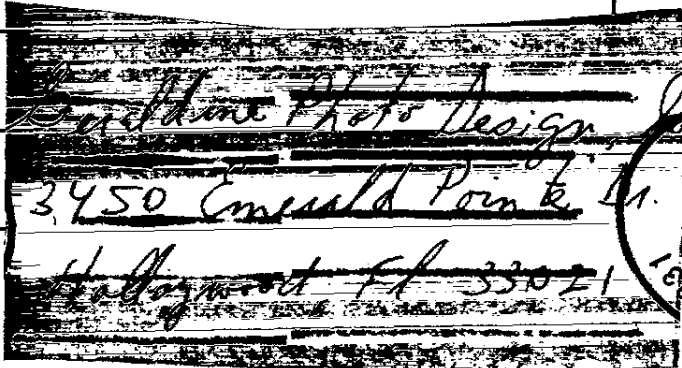 Geraldine Photo Design,
3450 Emerald Pointe Dr.
Hollywood Fl 33021